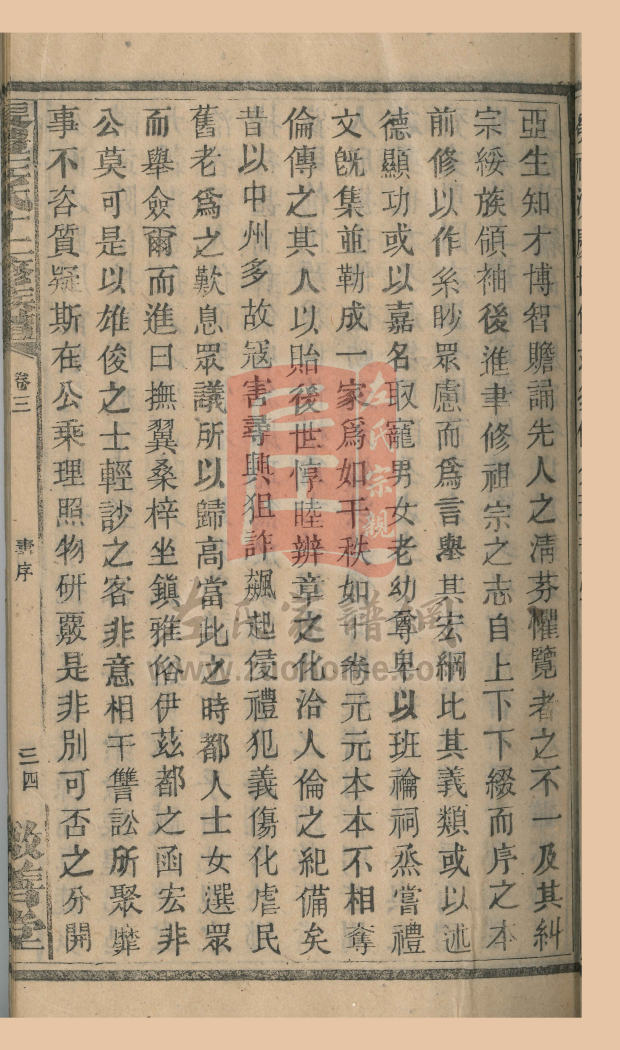 亞生知才博智贍誦先人之淸芬懼覽者之不一及其糾
宗綏族領袖後進聿修祖宗之志自上下下綴而序之本
前修以作系眇眾慮而爲言舉其宏綱比其義類或以述
德顯功或以嘉名取寵男女老幼尊卑以班禴祠烝嘗禮
文旣集並勒成一家爲如干秩如干卷元元本本不相奪
倫傳之其人以貽後世惇睦辨章之化洽人倫之紀備矣
昔以中州多故冦害尋興狙詐飆起侵禮犯義傷化虐民
舊老爲之歎息眾議所以歸高當此之時都人士女選眾
而舉僉爾而進曰撫翼桑梓坐鎭雅俗伊茲都之函宏非
公莫可是以雄俊之士輕訬之客非意相干讐訟所聚靡
事不咨質疑斯在公乘理照物研覈是非別可否之分開
卷三
聿序
三四
敘善堂
左氏宗親
左氏家譜網
www.zuohome.com